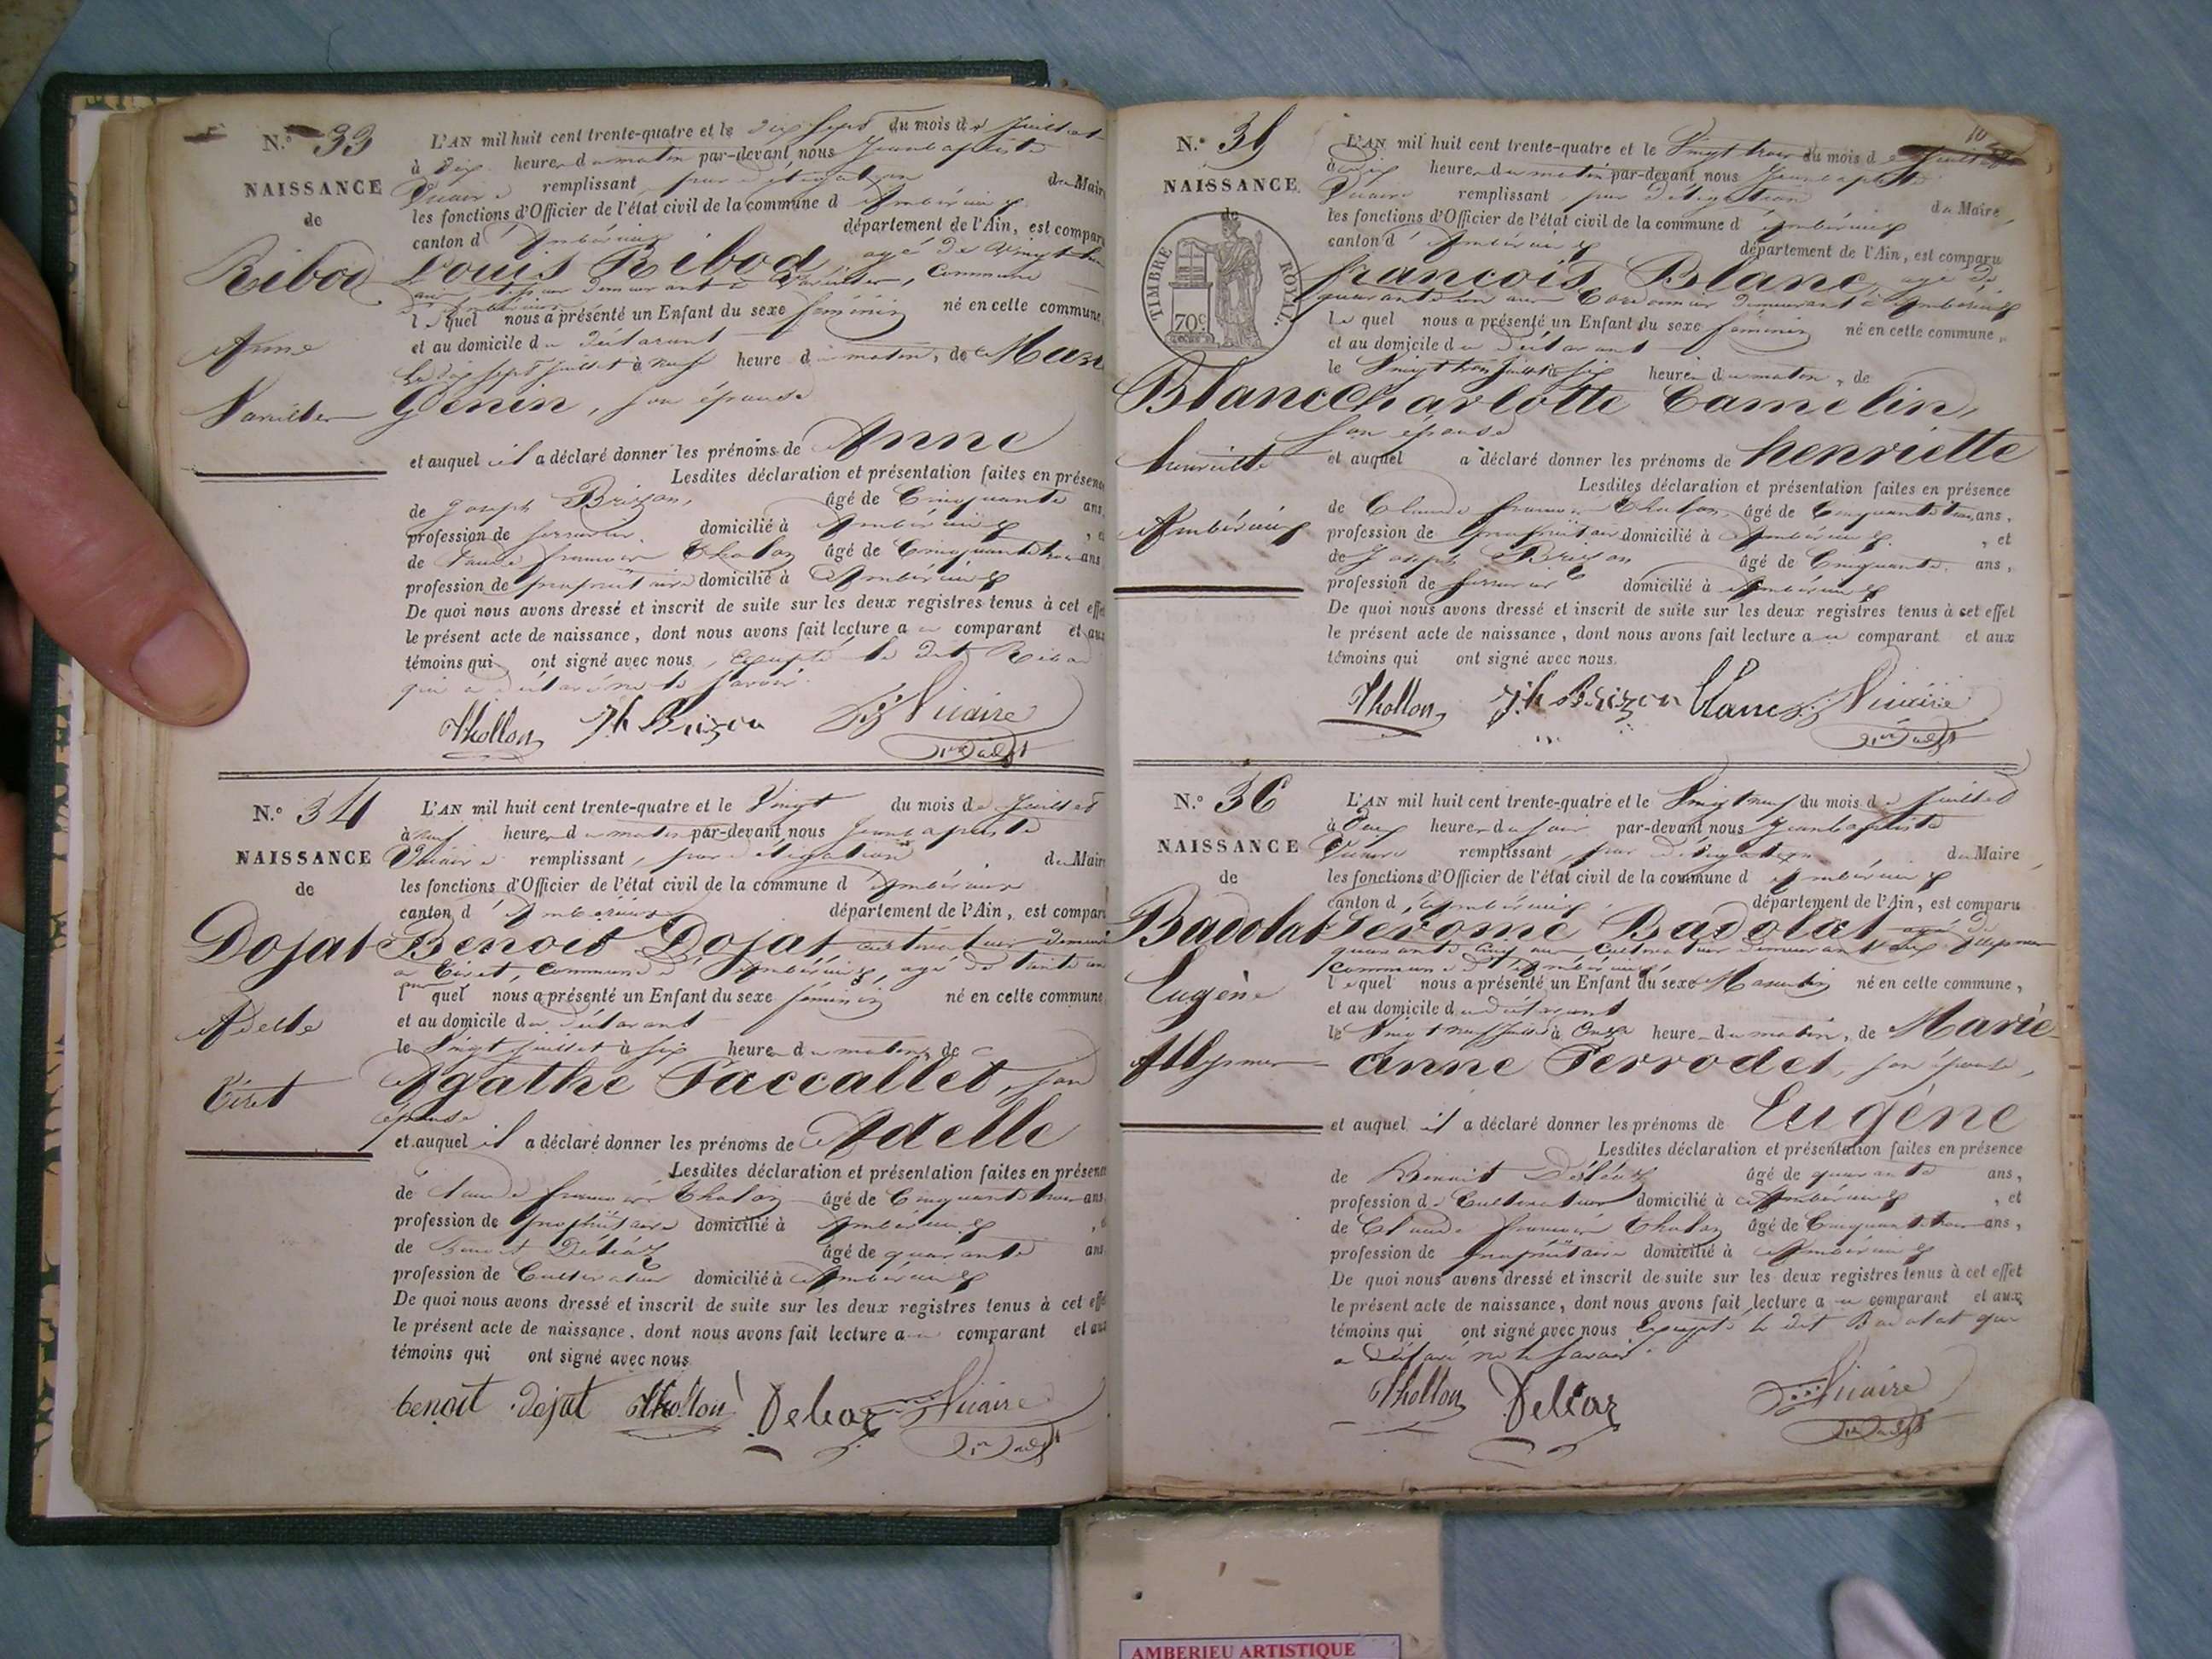 N.° 33
NAISSANCE
de
Ribod
Anne
Vareilles
L'AN mil huit cent trente-quatre et le dix sept du mois de Juillet
à dix heures du matin par-devant nous Jean baptiste
Vicaire remplissant, par délégation du Maire
les fonctions d'Officier de l'état civil de la commune d'Ambérieux
canton d'Ambérieux département de l'Ain, est comparu
Louis Ribod, agé de Vingt
ans, demeurant à Vareilles, Commune
d'Ambérieux
lequel nous a présenté un Enfant du sexe féminin né en cette commune,
et au domicile du déclarant
Le dix sept juillet à neuf heures du matin, de
Genin, son épouse
et auquel il a déclaré donner les prénoms de Anne
Lesdites déclaration et présentation faites en présence
de Joseph Brizon, âgé de Cinquante ans,
profession de serrurier domicilié à Ambérieux, et
de Claude francois Thollon âgé de Cinquante trois ans
profession de propriétaire domicilié à Ambérieux
De quoi nous avons dressé et inscrit de suite sur les deux registres tenus à cet effet
le présent acte de naissance, dont nous avons fait lecture au comparant et aux
témoins qui ont signé avec nous, Excepté le dit Ribod
qui a déclaré ne le savoir.
Thollon Jh Brizon Vicaire
N.° 34
NAISSANCE
de
Dojat
Adelle
Tiret
L'AN mil huit cent trente-quatre et le Vingt du mois de Juillet
à neuf heures du matin par-devant nous Jean baptiste
Vicaire remplissant, par délégation du Maire
les fonctions d'Officier de l'état civil de la commune d'Ambérieux
canton d'Ambérieux département de l'Ain, est comparu
Benoit Dojat cultivateur demeurant
a Tiret, Commune d'Ambérieux, agé de trente ans
lequel nous a présenté un Enfant du sexe féminin né en cette commune
et au domicile du déclarant
le Vingt juillet à six heures du matin, de
Agathe Paccallet, son
épouse
et auquel il a déclaré donner les prénoms de Adelle
Lesdites déclaration et présentation faites en présence
de Claude francois Thollon âgé de Cinquante trois ans
profession de propriétaire domicilié à Ambérieux, et
de Benoit Déléaz âgé de quarante ans
profession de Cultivateur domicilié à Ambérieux
De quoi nous avons dressé et inscrit de suite sur les deux registres tenus à cet effet
le présent acte de naissance, dont nous avons fait lecture au comparant et aux
témoins qui ont signé avec nous
benoit dojat Thollon Deleaz Vicaire
10
N.° 35
NAISSANCE
de
TIMBRE ROYAL.
70c
Blanc
henriette
Ambérieux
L'AN mil huit cent trente-quatre et le Vingt trois du mois de Juillet
à dix heures du matin par-devant nous Jean baptiste
Vicaire remplissant, par délégation du Maire,
les fonctions d'Officier de l'état civil de la commune d'Ambérieux
canton d'Ambérieux département de l'Ain, est comparu
francois Blanc, agé de
quarante un ans Cordonnier demeurant à Ambérieux
Lequel nous a présenté un Enfant du sexe féminin né en cette commune,
et au domicile du déclarant
le Vingt trois juillet à six heures du matin, de
Charlotte Camelin,
son épouse
et auquel a déclaré donner les prénoms de henriette
Lesdites déclaration et présentation faites en présence
de Claude francois Thollon, âgé de Cinquante trois ans,
profession de propriétaire domicilié à Ambérieux, et
de Joseph Brizon âgé de Cinquante ans,
profession de serrurier domicilié à Ambérieux
De quoi nous avons dressé et inscrit de suite sur les deux registres tenus à cet effet
le présent acte de naissance, dont nous avons fait lecture au comparant et aux
témoins qui ont signé avec nous.
Thollon Jh Brizon blanc Vicaire
N.° 36
NAISSANCE
de
Badolat
Eugène
L'AN mil huit cent trente-quatre et le Vingt neuf du mois de Juillet
à Deux heures du soir par-devant nous Jean baptiste
Vicaire remplissant, par délégation du Maire,
les fonctions d'Officier de l'état civil de la commune d'Ambérieux
canton d'Ambérieux département de l'Ain, est comparu
Jérome Badolat agé de
quarante cinq ans Cultivateur demeurant aux
Commune d'Ambérieux,
lequel nous a présenté un Enfant du sexe Masculin né en cette commune,
et au domicile du déclarant
le Vingt neuf juillet à Onze heures du matin, de Marie
anne Perrodet, son épouse,
et auquel il a déclaré donner les prénoms de Eugène
Lesdites déclaration et présentation faites en présence
de Benoit Déléaz âgé de quarante ans,
profession de Cultivateur domicilié à Ambérieux, et
de Claude francois Thollon âgé de Cinquante trois ans,
profession de propriétaire domicilié à Ambérieux
De quoi nous avons dressé et inscrit de suite sur les deux registres tenus à cet effet
le présent acte de naissance, dont nous avons fait lecture au comparant et aux
témoins qui ont signé avec nous Excepté le dit Badolat qui
a déclaré ne le savoir.
Thollon Deleaz Vicaire
AMBERIEU ARTISTIQUE